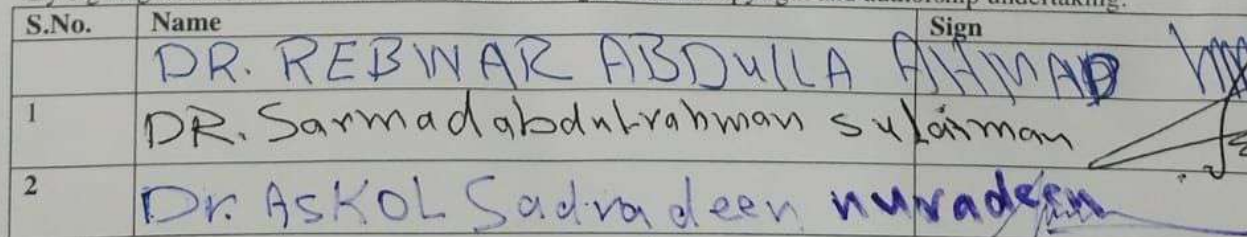 authorship undertaking.
S.No. Name Sign
DR. REBWAR ABDUllA AHMAD
1 DR. Sarmad abdulrahman sulaiman
2 Dr. ASKOL Sadradeen nuradeen